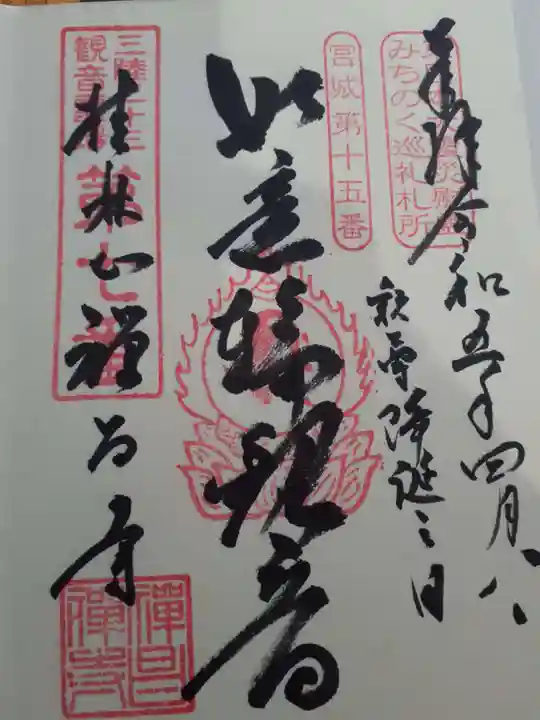 奉拝 令和五年四月八日
釈尊降誕之日
みちのく巡礼札所
宮城第十五番
如意輪観音
三陸三十三
観音霊場
第七番
桂林山禅昌寺
禅昌
禅寺